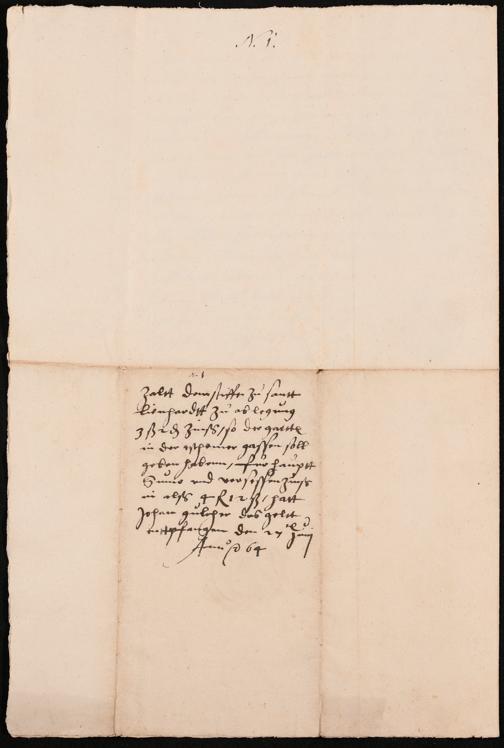 N. 1.
N. 1
Zaltt dem stifft zu santt
Lienhardtt zu ablegung
3 ß 2 d Zinß, so der gartte
in der gassen soll
geben habenn, für hauptt
Summ vnd versessen Zinß
in alls 4 12 ß, hatt
Johan das gelt
enttpfangen den 27 Junij
Anno 64